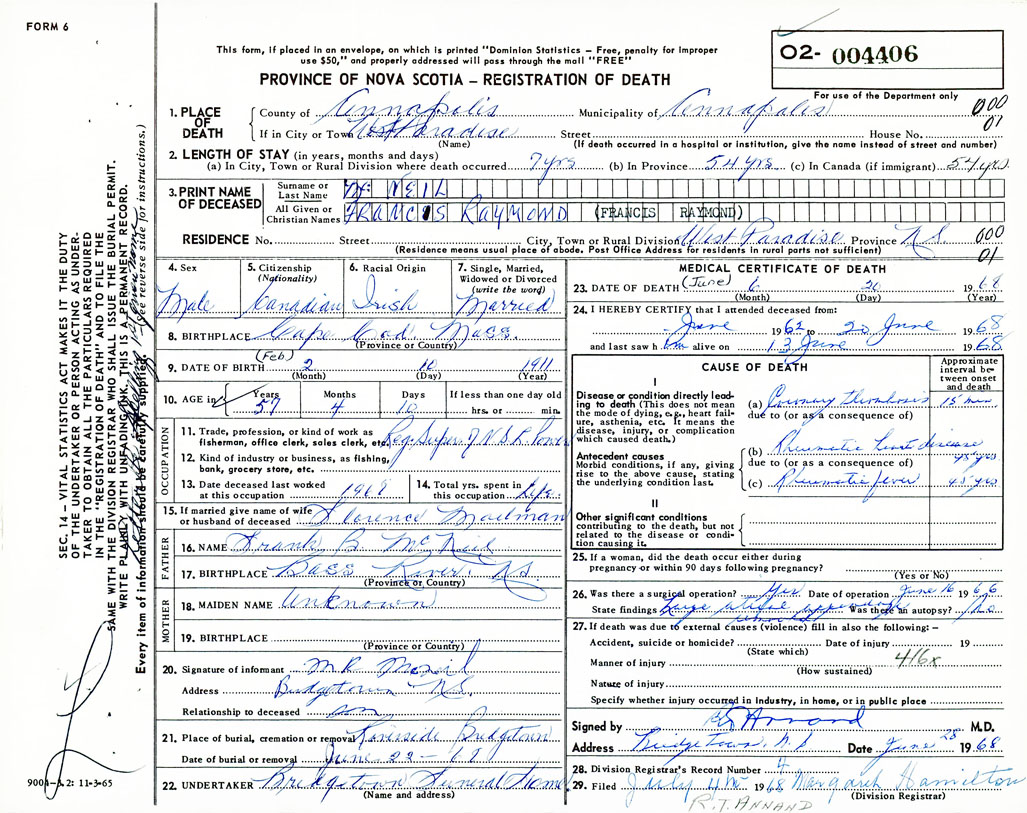 FORM 6
This form, if placed in an envelope, on which is printed "Dominion Statistics — Free, penalty for improper
use $50," and properly addressed will pass through the mail "FREE"
O2- 004406
PROVINCE OF NOVA SCOTIA — REGISTRATION OF DEATH
For use of the Department only
000
01
1. PLACE OF DEATH
County of Annapolis Municipality of Annapolis
If in City or Town West Paradise Street House No.
(Name) (If death occurred in a hospital or institution, give the name instead of street and number)
2. LENGTH OF STAY (in years, months and days)
(a) In City, Town or Rural Division where death occurred 7 yrs (b) In Province 54 yrs. (c) In Canada (if immigrant) 54 yrs
3. PRINT NAME OF DECEASED
Surname or Last Name Mc NEIL
All Given or Christian Names FRANCIS RAYMOND (FRANCIS RAYMOND)
RESIDENCE No. Street City, Town or Rural Division West Paradise Province N.S.
000
01
(Residence means usual place of abode. Post Office Address for residents in rural parts not sufficient)
4. Sex
Male
5. Citizenship (Nationality)
Canadian
6. Racial Origin
Irish
7. Single, Married, Widowed or Divorced (write the word)
Married
8. BIRTHPLACE Cape Cod, Mass.
(Province or Country)
(Feb)
9. DATE OF BIRTH 2 10 1911
(Month) (Day) (Year)
10. AGE in
Years Months Days If less than one day old
57 4 10 hrs. or min.
OCCUPATION
11. Trade, profession, or kind of work as
fisherman, office clerk, sales clerk, etc. Reg. Super. N.S.P. Power
12. Kind of industry or business, as fishing,
bank, grocery store, etc.
13. Date deceased last worked
at this occupation 1968
14. Total yrs. spent in
this occupation Life
15. If married give name of wife
or husband of deceased Florence Mailman
FATHER
16. NAME Frank B. McNeil
17. BIRTHPLACE Bass River, N.S
(Province or Country)
MOTHER
18. MAIDEN NAME Unknown
19. BIRTHPLACE
(Province or Country)
20. Signature of informant M R McNeil
Address Bridgetown N.S.
Relationship to deceased son
21. Place of burial, cremation or removal Riverside Bridgetown
Date of burial or removal June 22 - 68
22. UNDERTAKER Bridgetown Funeral Home
(Name and address)
MEDICAL CERTIFICATE OF DEATH
23. DATE OF DEATH (June) 6 20 1968
(Month) (Day) (Year)
24. I HEREBY CERTIFY that I attended deceased from:
June 1962 to 20 June 1968
and last saw him alive on 13 June 1968
CAUSE OF DEATH
Approximate interval between onset and death
I
Disease or condition directly leading
to death (This does not mean
the mode of dying, e.g., heart failure,
asthenia, etc. It means the
disease, injury, or complication
which caused death.)
(a) Coronary thrombosis 15 min
due to (or as a consequence of)
Antecedent causes
Morbid conditions, if any, giving
rise to the above cause, stating
the underlying condition last.
(b) Rheumatic heart disease 45 yrs
due to (or as a consequence of)
(c) Rheumatic fever 45 yrs
II
Other significant conditions
contributing to the death, but not
related to the disease or condition
causing it.
25. If a woman, did the death occur either during
pregnancy or within 90 days following pregnancy?
(Yes or No)
26. Was there a surgical operation? Yes Date of operation June 16 1966
State findings Large appendage removed Was there an autopsy? No
27. If death was due to external causes (violence) fill in also the following: —
Accident, suicide or homicide? Date of injury 19
(State which)
416x
Manner of injury
(How sustained)
Nature of injury
Specify whether injury occurred in industry, in home, or in public place
Signed by Annand M.D.
Address Bridgetown, N.S Date June 28 1968
28. Division Registrar's Record Number 4
29. Filed July 4th 1968 Margaret Hamilton
(Division Registrar)
R.T. ANNAND
SEC. 14 — VITAL STATISTICS ACT MAKES IT THE DUTY
OF THE UNDERTAKER OR PERSON ACTING AS UNDERTAKER
TO OBTAIN ALL THE PARTICULARS REQUIRED
IN THE "REGISTRATION OF DEATH" AND TO FILE THE
SAME WITH THE DIVISION REGISTRAR WHO SHALL ISSUE THE BURIAL PERMIT.
WRITE PLAINLY WITH UNFADING INK. THIS IS A PERMANENT RECORD.
Every item of information should be carefully supplied. (See reverse side for instructions.)
9004-3.2: 11-3-65